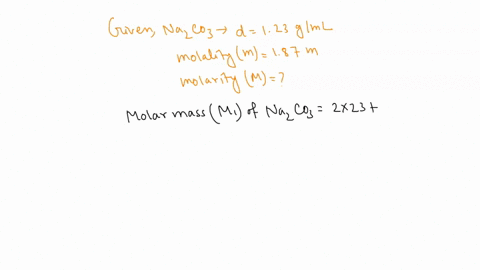 Given, Na₂CO₃ → d = 1.23 g/mL
molality (m) = 1.87 m
molarity (M) = ?
Molar mass (M₁) of Na₂CO₃ = 2×23+